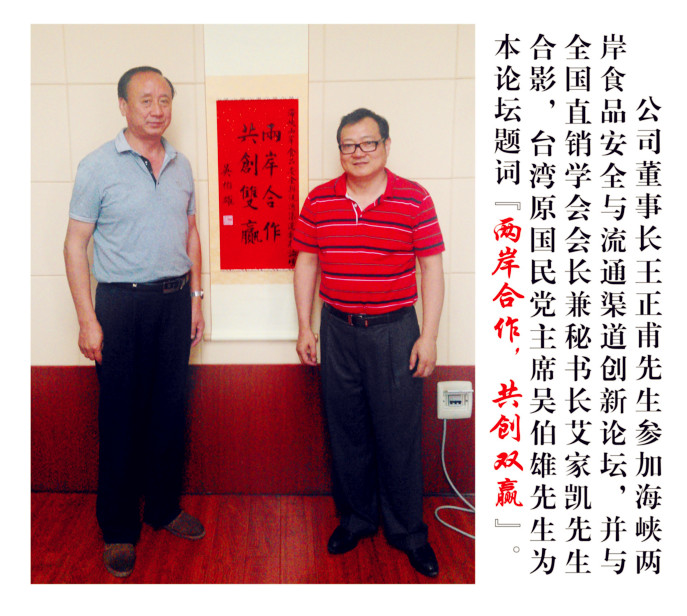 公司董事长王正甫先生参加海峡两
岸食品安全与流通渠道创新论坛，并与
全国直销学会会长兼秘书长艾家凯先生
合影，台湾原国民党主席吴伯雄先生为
本论坛题词『两岸合作，共创双赢』。
兩岸合作
共創雙贏
吳伯雄